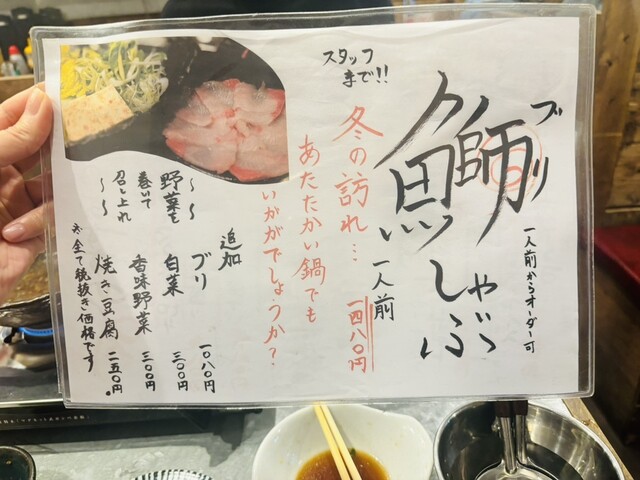 鰤しゃぶ
ブリ
一人前からオーダー可
一人前 一四八〇円
スタッフ
まで!!
冬の訪れ…
あたたかい鍋でも
いかがでしょうか?
追加
ブリ 一〇八〇円
白菜 三〇〇円
香味野菜 三〇〇円
焼き豆腐 二五〇円。
〜野菜も
巻いて
召し上れ〜
※全て税抜き価格です